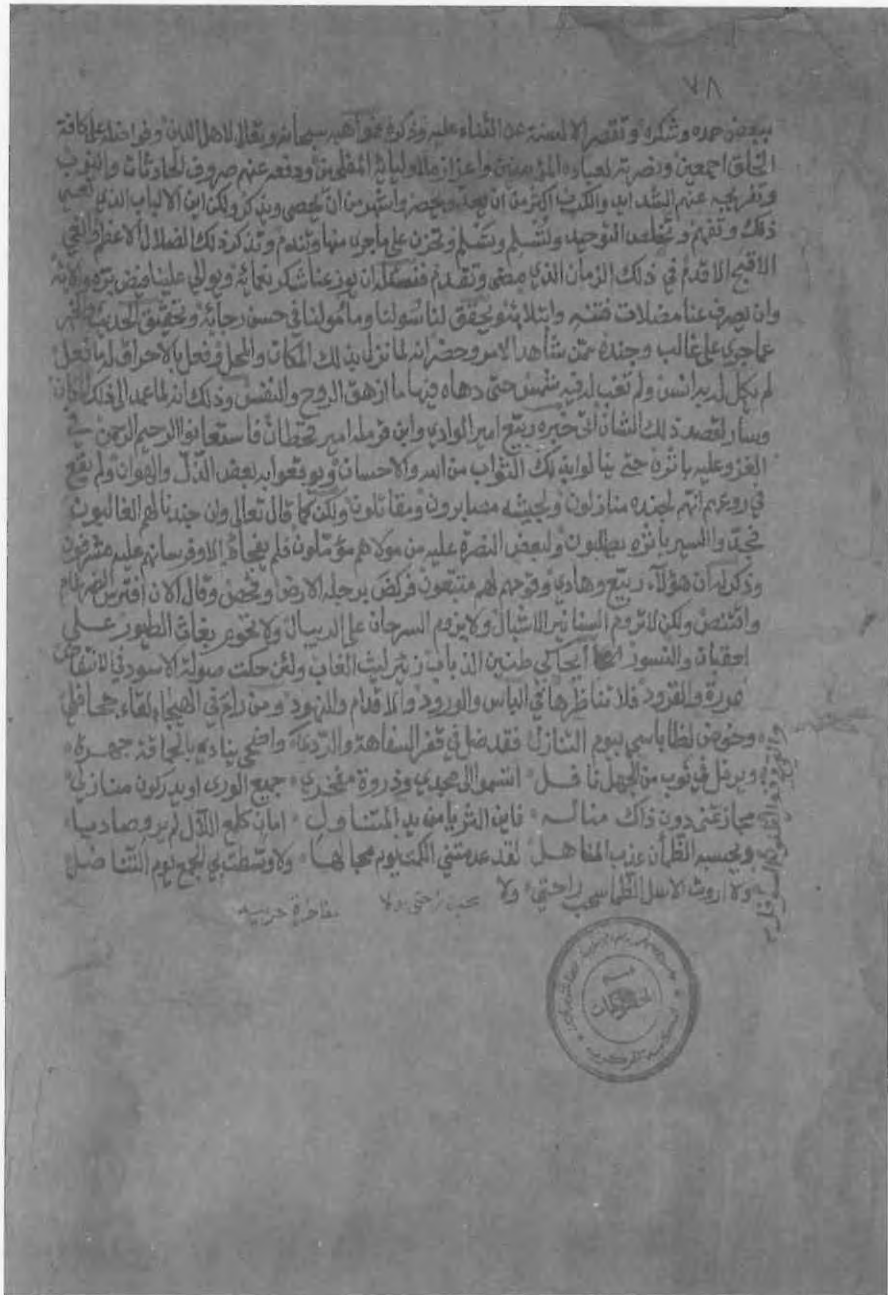 ٧٨
ببعض حمده وشكره وتقصر الالسنة عن الثناء عليه وذكره فمواهبه سبحانه وتعالى لاهل الدين وفواضله على كافة
الخلق اجمعين ونصرته لعباده المؤمنين واعزازه لاوليائه المفلحين ودفعه عنهم صروف الحادثات والنوب
وتفريجه عنهم الشدايد والكرب اكثر من ان يعد ويحصر واشهر من ان يحصى ويذكر ولكن اين الالباب الذي تعي
ذلك وتفهم وتخلص التوحيد وتستسلم وتحزن على ما جرى منها وتندم وتذكر ذلك الضلال الاعظم والغي
الاقبح الاقدم في ذلك الزمان الذي مضى وتقدم فنسئله ان يوزعنا شكر نعمائه ويوالي علينا فيض بره والائه
وان يصرف عنا مضلات فتنه وابتلائه ويحقق لنا سولنا ومامولنا في حسن رجائه وتحقيق الحديث والخبر
عما جرى على غالب وجنده ممن شاهد الامر وحضر انه لما نزل بذلك المكان والمحل وفعل بالاحراق له ما فعل
لم يكمل لديه انس ولم تغب له فيه شمس حتى دهاه فيها ما ازهق الروح والنفس وذلك انه لما عمد الى ذلك
وسار لقصد ذلك الشان اتى خبره ربيع امير الوادي وابن قرمله امير قحطان فاستعانوا الرحيم الرحمن في
الغزو عليه باثره حتى ينالوا بذلك الثواب من الله والاحسان ويوقعوا به بعض الذل والهوان ولم يقع
في روعهم انهم لجنده منازلون ولجيشه مصابرون ومقاتلون ولكن كما قال تعالى وان جندنا لهم الغالبون
فجدوا المسير باثره يطلبون ولبعض النصرة عليه من مولاهم مؤملون فلم يفجاه الا وفرسانهم عليه مشرفون
وذكر له ان هؤلاء ربيع وهادي وقومهم لهم متبعون فركض برجله الارض وفحص وقال الان افترس الضرغام
واقتنص ولكن لا تروم السنانير الاشبال ولا يروم السرحان على الريبال ولا تحوم بغاث الطيور على
العقبان والنسور ايحاكي طنين الذباب زئير ليث الغاب ولئن حكت صولة الاسود في الانتفاض
صورة والقرود فلا تناظرها في الباس والورود والاقدام والنهود ومن رام في الهيجاء لقاء جحافلي
وخوض لظا باسي بيوم التنازل فقد ضل في قفر السفاهة والردى واضحى ينادى بالحماقة جهرة
ويرفل في ثوب من الجهل نافل اتسموا الى مجدي وذروة مفخري جميع الورى او يدركون منازلي
مجاز تمنى دون ذاك مناله فاين الثريا من يد المتناول امان كلمع الآل لم يرو صاديا
ويحسبه الظمان عذب المناهل لقد عدمتني الكمت يوم مجالها ولا وسطت بي الجمع يوم التناضل
ولا اروت الاسل الظما سحب راحتي ولا
سحب راحتي ولا